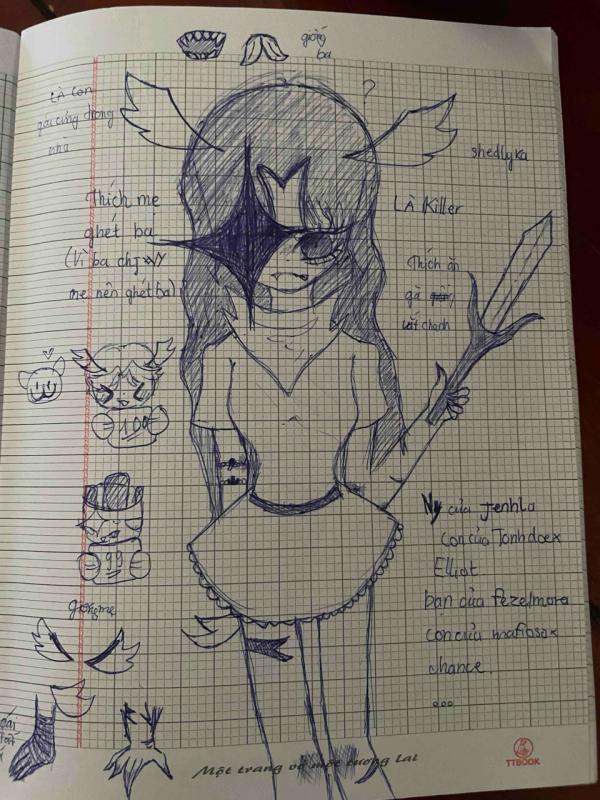 giống
ba
?
Là con
gái cưng trong
nhà
shedlyka
Thích mẹ
ghét ba
(Vì ba
mẹ nên ghét ba)
LÀ Killer
Thích ăn
gà
vắt chanh
100
99
giống mẹ
Ny của Jenhla
con của Jonhdoex
Elliot
bạn của fezelmora
con của mafiosox
chance
...
Một trang vở một tương lai
TTBOOK